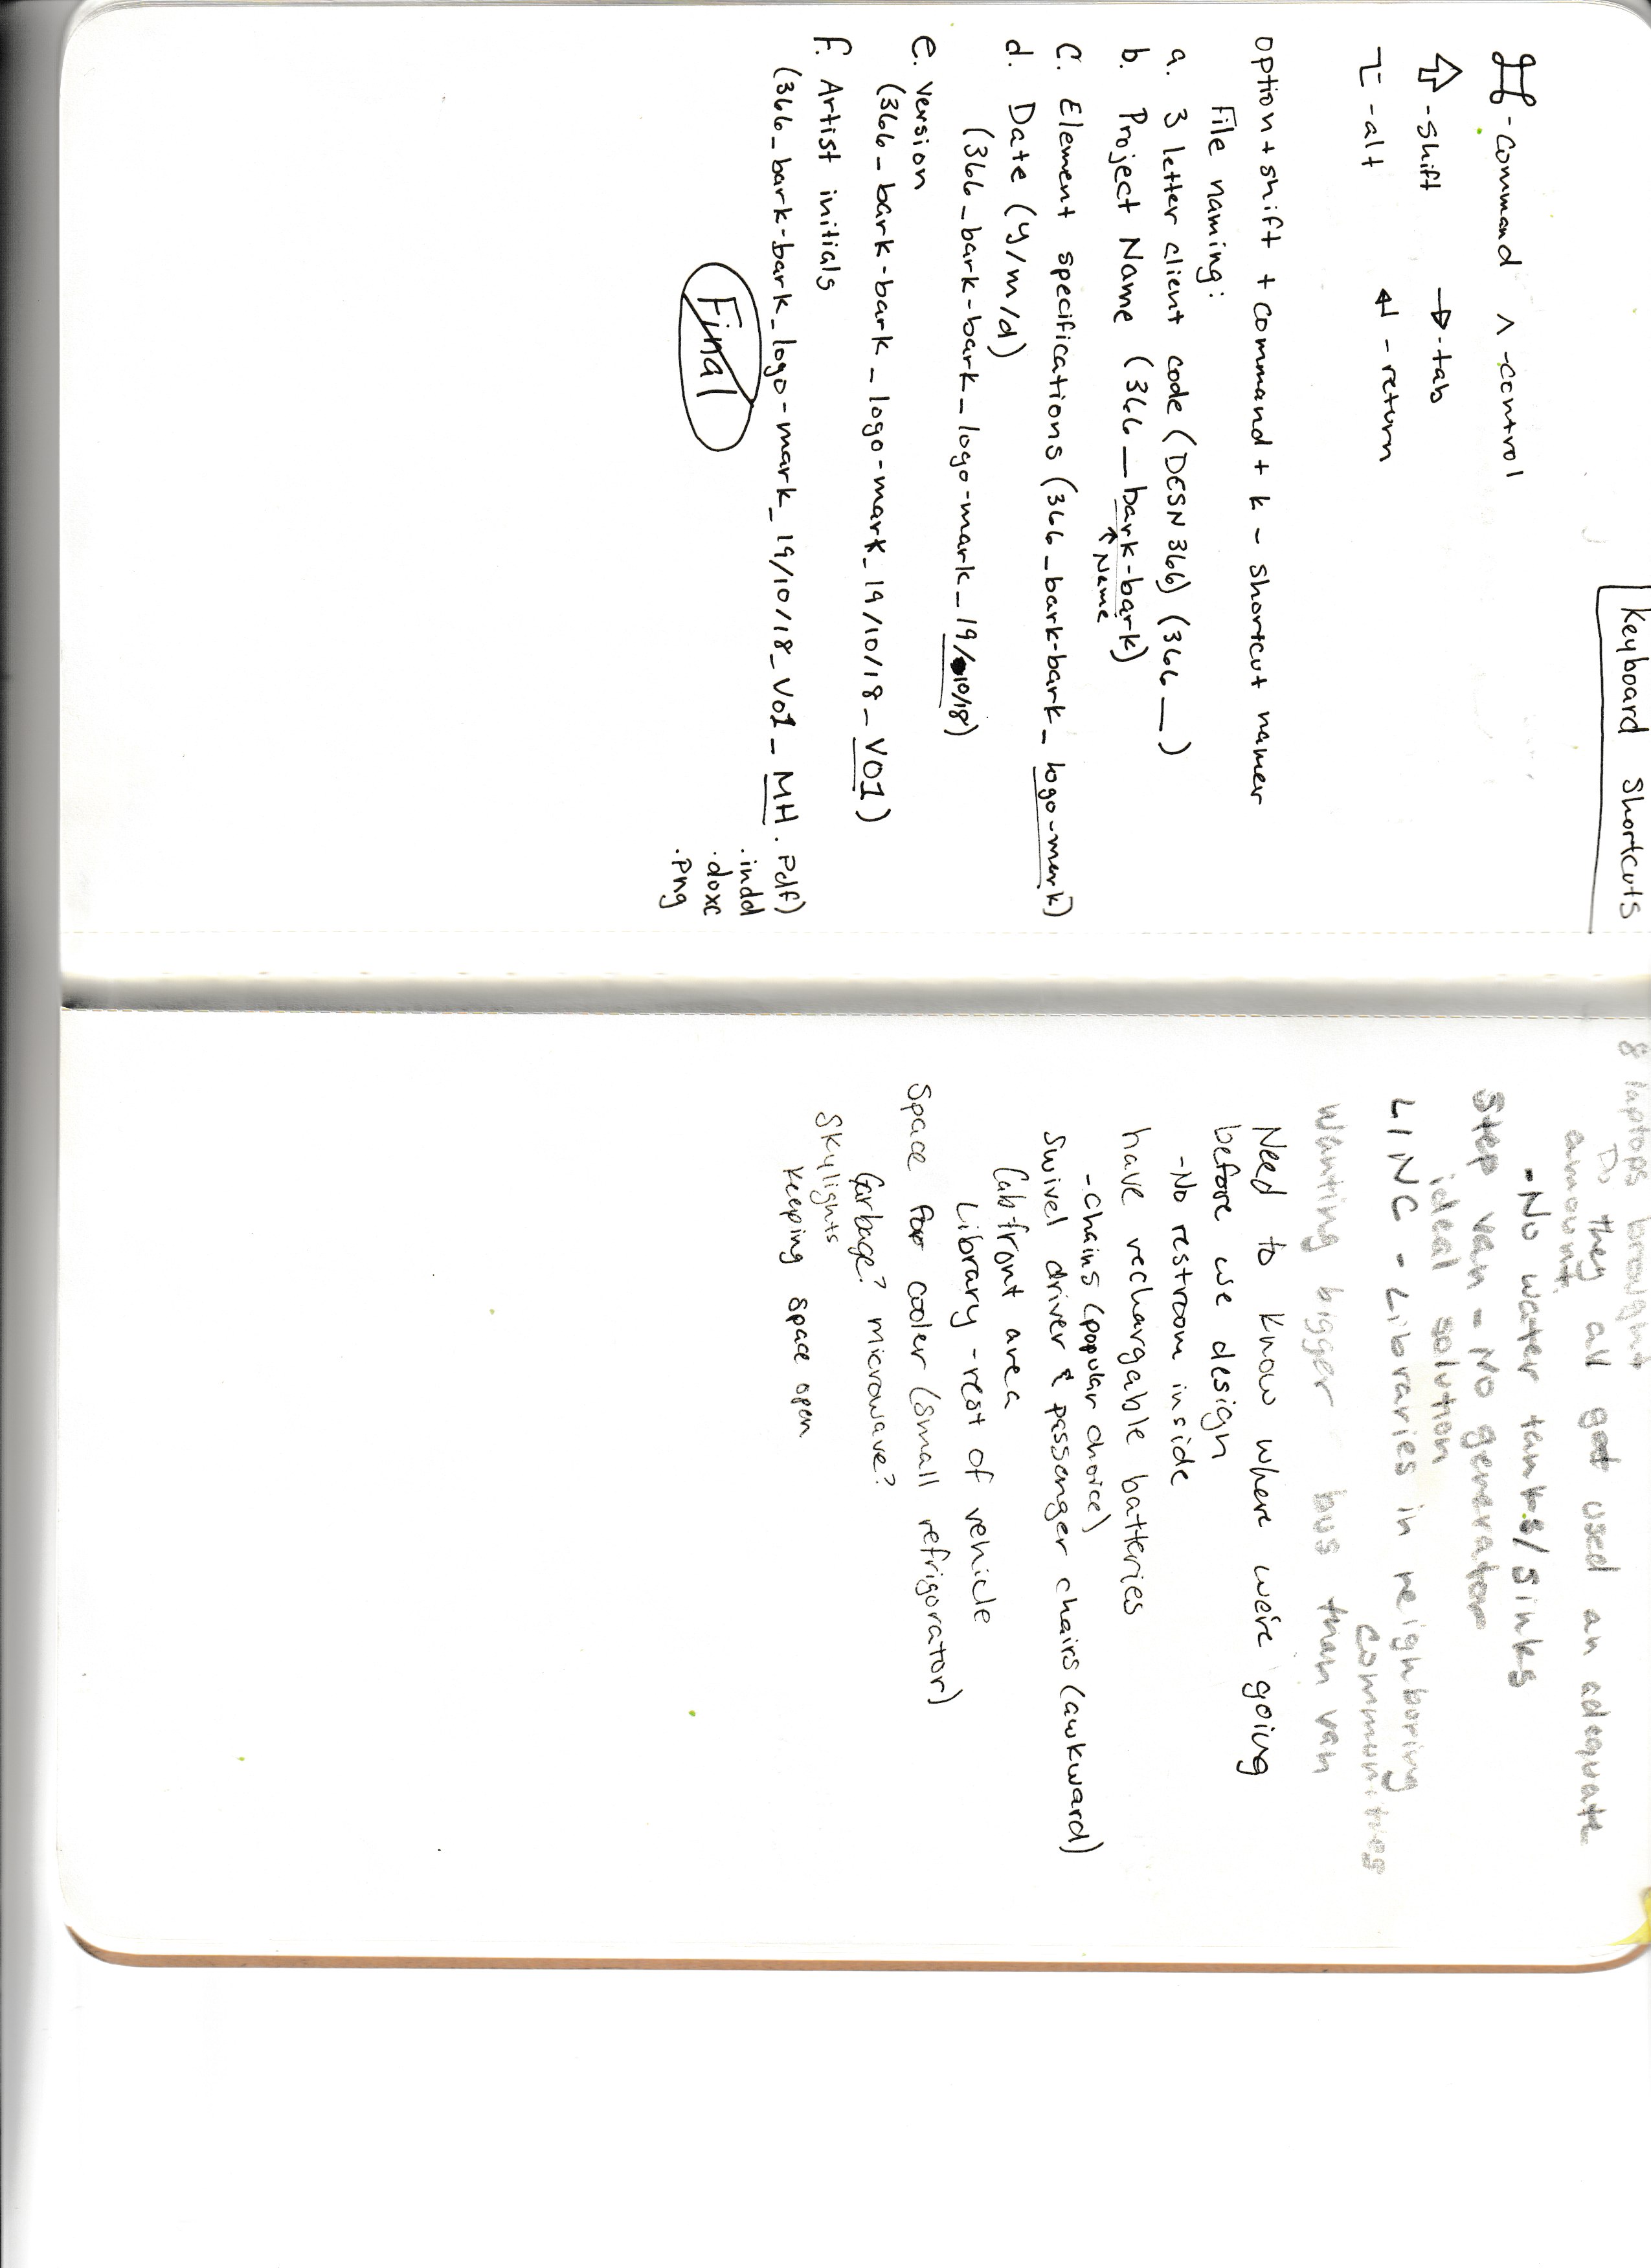 Keyboard Shortcuts
⌘ - Command ^ - control
⇧ - shift → - tab
⌥ - alt ↵ - return
option + shift + command + k - shortcut namer
File naming:
a. 3 letter client code (DESN 366) (366_)
b. Project Name (366_bark-bark)
↑ Name
c. Element specifications (366_bark-bark_logo-mark)
d. Date (y/m/d)
(366_bark-bark_logo-mark_19/10/18)
e. Version
(366_bark-bark_logo-mark_19/10/18_V01)
f. Artist initials
(366_bark-bark_logo-mark_19/10/18_V01_MH.pdf)
.indd
.doxc
.png
Final
8 laptops brought
they all got used an adequate
amount
- No water tanks/sinks
Step van - No generator
ideal solution
LINC - Libraries in neighboring
communities
Wanting bigger bus than van
Need to know where we're going
before we design
- No restroom inside
have rechargable batteries
- chains (popular choice)
Swivel driver & passenger chairs (awkward)
Cab front area
Library - rest of vehicle
Space for cooler (small refrigorator)
Garbage? microwave?
Skylights
Keeping space open